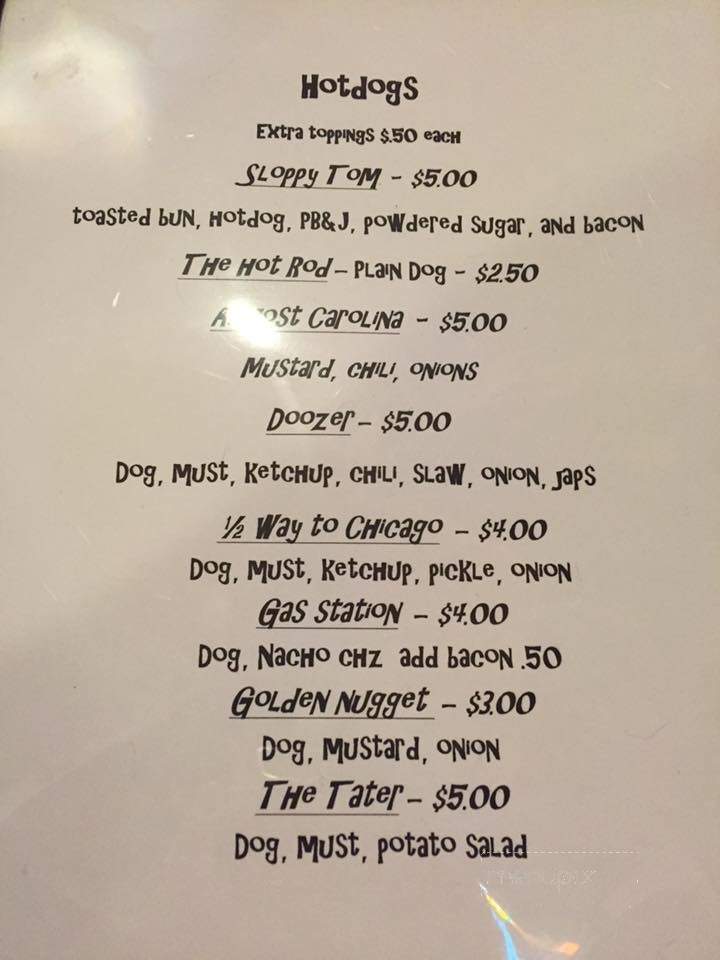 Hotdogs
Extra toppings $.50 each
Sloppy Tom - $5.00
toasted bun, Hotdog, PB&J, powdered sugar, and bacon
The Hot Rod – Plain Dog - $2.50
Carolina - $5.00
Mustard, chili, onions
Doozer – $5.00
Dog, Must, Ketchup, chili, slaw, onion, japs
½ Way to Chicago – $4.00
Dog, Must, Ketchup, pickle, onion
Gas Station – $4.00
Dog, Nacho chz add bacon .50
Golden Nugget – $3.00
Dog, Mustard, onion
The Tater – $5.00
Dog, Must, potato salad